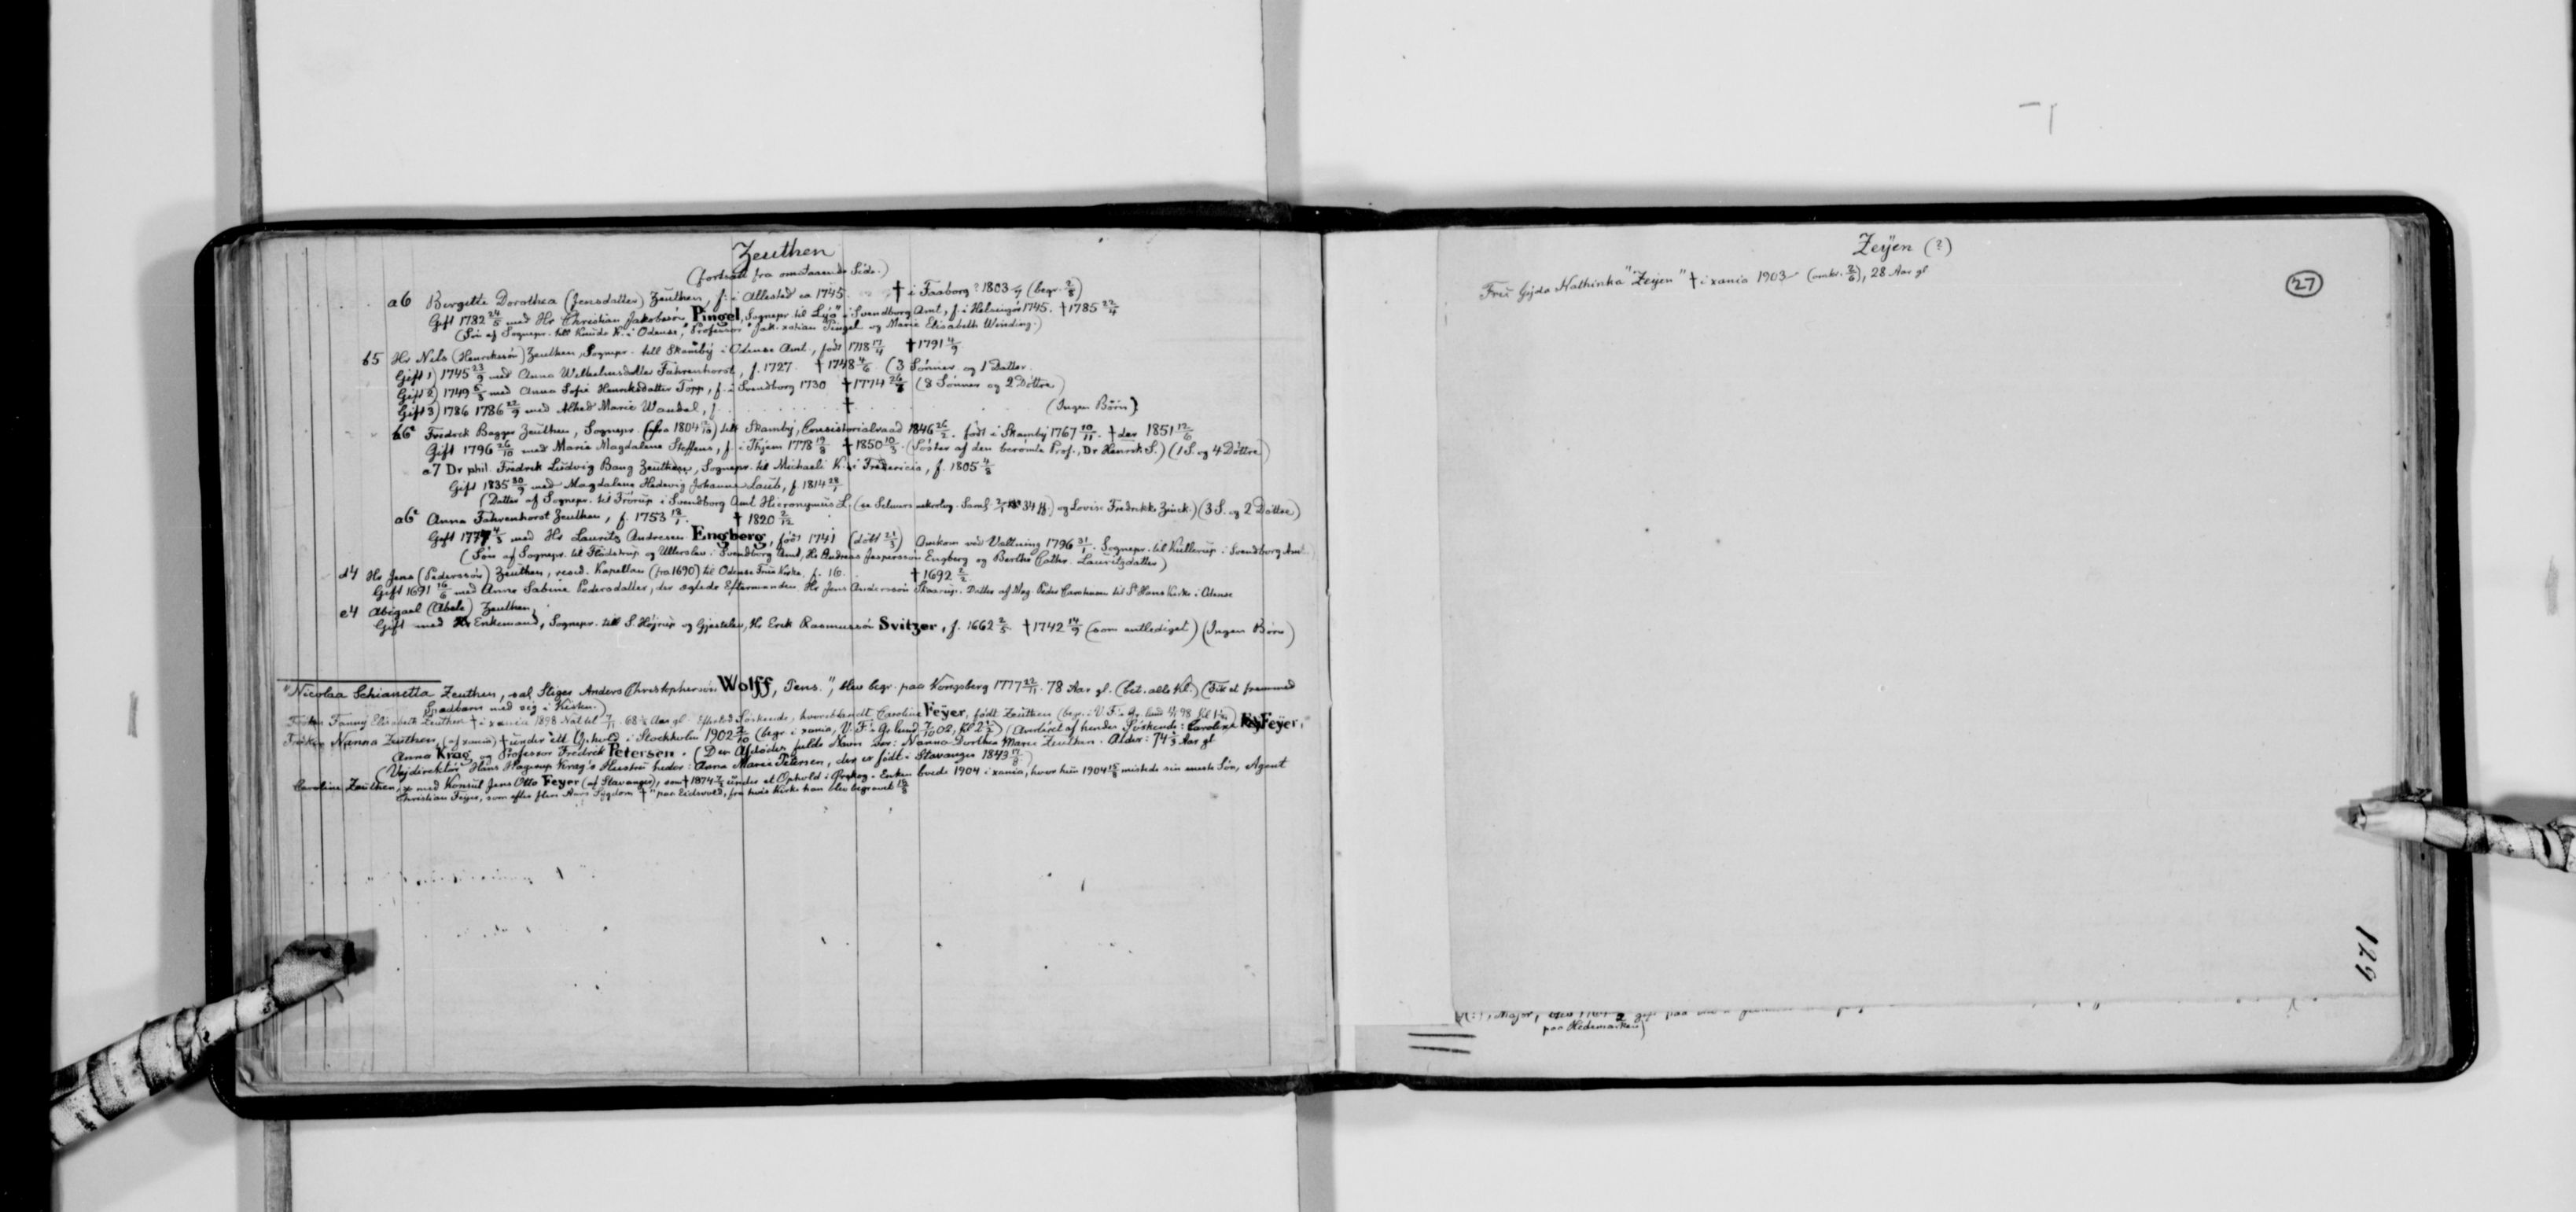 Zeuthen
(fortsatt fra omstaaende Side.)
a6 Birgitte Dorothea (Jensdatter) Zeuthen, f. i Allested ca 1745. † i Faaborg ? 1803 (begr. 2/8)
Gift 1782 24/5 med Hr Christian Jakobssøn Pingel, Sognepr til Lyø i Svendborg Amt, f. i Helsingør 1745. † 1785 22/4
(Søn af Sognepr. till Knuds K. i Odense, "Professor" Jak. xstian Pingel og Marie Elisabeth Winding.)
b5 Hr Nils (Henrikssøn) Zeuthen, Sognepr. till Skamby i Odense Amt, født 1718 17/4 † 1791 4/9
Gift 1) 1745 23/9 med Anna Wilhelmsdatter Fahrenhorst, f. 1727. † 1748 4/6 (3 Sønner og 1 Datter.
Gift 2) 1749 5/3 med Anna Sofie Henriksdatter Topp, f. i Svendborg 1730 † 1774 26/8 (8 Sønner og 2 Døttre)
Gift 3) 1786 1786 22/9 med Alhed Marie Wandel, f. † (Ingen Børn)
Fredrik Bagger Zeuthen, Sognepr. (fra 1804) till Skamby, Consistorialraad 1846 26/2. født i Skamby 1767 10/11. † der 1851 12/6
Gift 1796 26/10 med Marie Magdalene Steffens, f. i Thjem 1778 19/3 † 1850 10/3. (Søster af den berømte Prof., Dr Henrik S.) (1 S. og 4 Døttre)
a7 Dr phil. Fredrik Ludvig Bang Zeuthen, Sognepr. til Michaeli K. i Fredericia, f. 1805 4/3
Gift 1835 30/9 med Magdalene Hedevig Johanne Laub, f. 1814 28/1
(Datter af Sognepr. til Frørup i Svendborg Amt Hieronymus L. (se Selmers nekrolog. Saml. 34 ff.) og Lovise Fredrikke Zinck.) (3 S. og 2 Døttre)
a6 Anna Fahrenhorst Zeuthen, f. 1753 12/1. † 1820 2/12
Gift 1777 4/5 med Hr Lauritz Andresen Engberg, født 1741 (døbt 21/3) Omkom ved Væltning 1796 31/1. Sognepr. til Kullerup i Svendborg Amt.
(Søn af Sognepr. til Flødstrup og Ullerslev i Svendborg Amt, Hr Andreas Jesperssøn Engberg og Berthe Cathr. Lauritzdatter)
d4 Hr Jens (Pederssøn) Zeuthen, resid. Kapellan (fra 1690) til Odense Frue Kirke, f. 16. † 1692 2/2
Gift 1691 16/6 med Anne Sabine Pedersdatter, der ægtede Eftermanden Hr Jens Anderssøn Skaarup. Datter af Mag. Peder Carstensen til St Hans Kirke i Odense
e4 Abigael (Abele) Zeuthen,
Gift med Enkemand, Sognepr. till S. Højrup og Gjestelev, Hr Erik Rasmussøn Svitzer, f. 1662 2/5 † 1742 14/9 (som entlediget) (Ingen Børn)
"Nicolaa Schianetta Zeuthen, sal Stiger Anders Christophersøn Wolff, Pens.", blev begr. paa Kongsberg 1777 22/11. 78 Aar gl. (bet. alle Kl.) (Fik et fremmed
Spædbarn med sig i Kisten.)
Frøken Fanny Elisabeth Zeuthen † i xania 1898 Nat til 7/11. 68 Aar gl. Efterlod Søskende, hvoriblandt Caroline Feyer, født Zeuthen
Frøken Nanna Zeuthen, (af xania) † under ett Ophold i Stockholm 1902 2/10 (begr. i xania, V. F. s Gr. lund 7/10 02, Kl 2½) (Averteret af hendes Søskende: Caroline Feyer,
Anna Krag og Professor Fredrik Petersen. (Den Afdødes fulde Navn var: Nanna Dorthea Marie Zeuthen. Alder: 74 Aar gl
(Vejdirektør Hans Hagerup Krag's Hustru heder: Anna Marie Petersen, der er født i Stavanger 1843 17/8)
Caroline Zeuthen, x med Konsul Jens Otto Feyer (af Stavanger), som † 1874 under et Ophold i Ørskog. Enken boede 1904 i xania, hvor hun 1904 15/8 mistede sin eneste Søn, Agent
Christian Feyer, som efter flere Aars Sygdom † "paa Eidsvold, fra hvis Kirke han blev begravet 19/8
Zeyen (?)
Fru Gyda Kathinka "Zeyen" † i xania 1903 (omkr. 2/6), 28 Aar gl
27
129
paa Hedemarken)